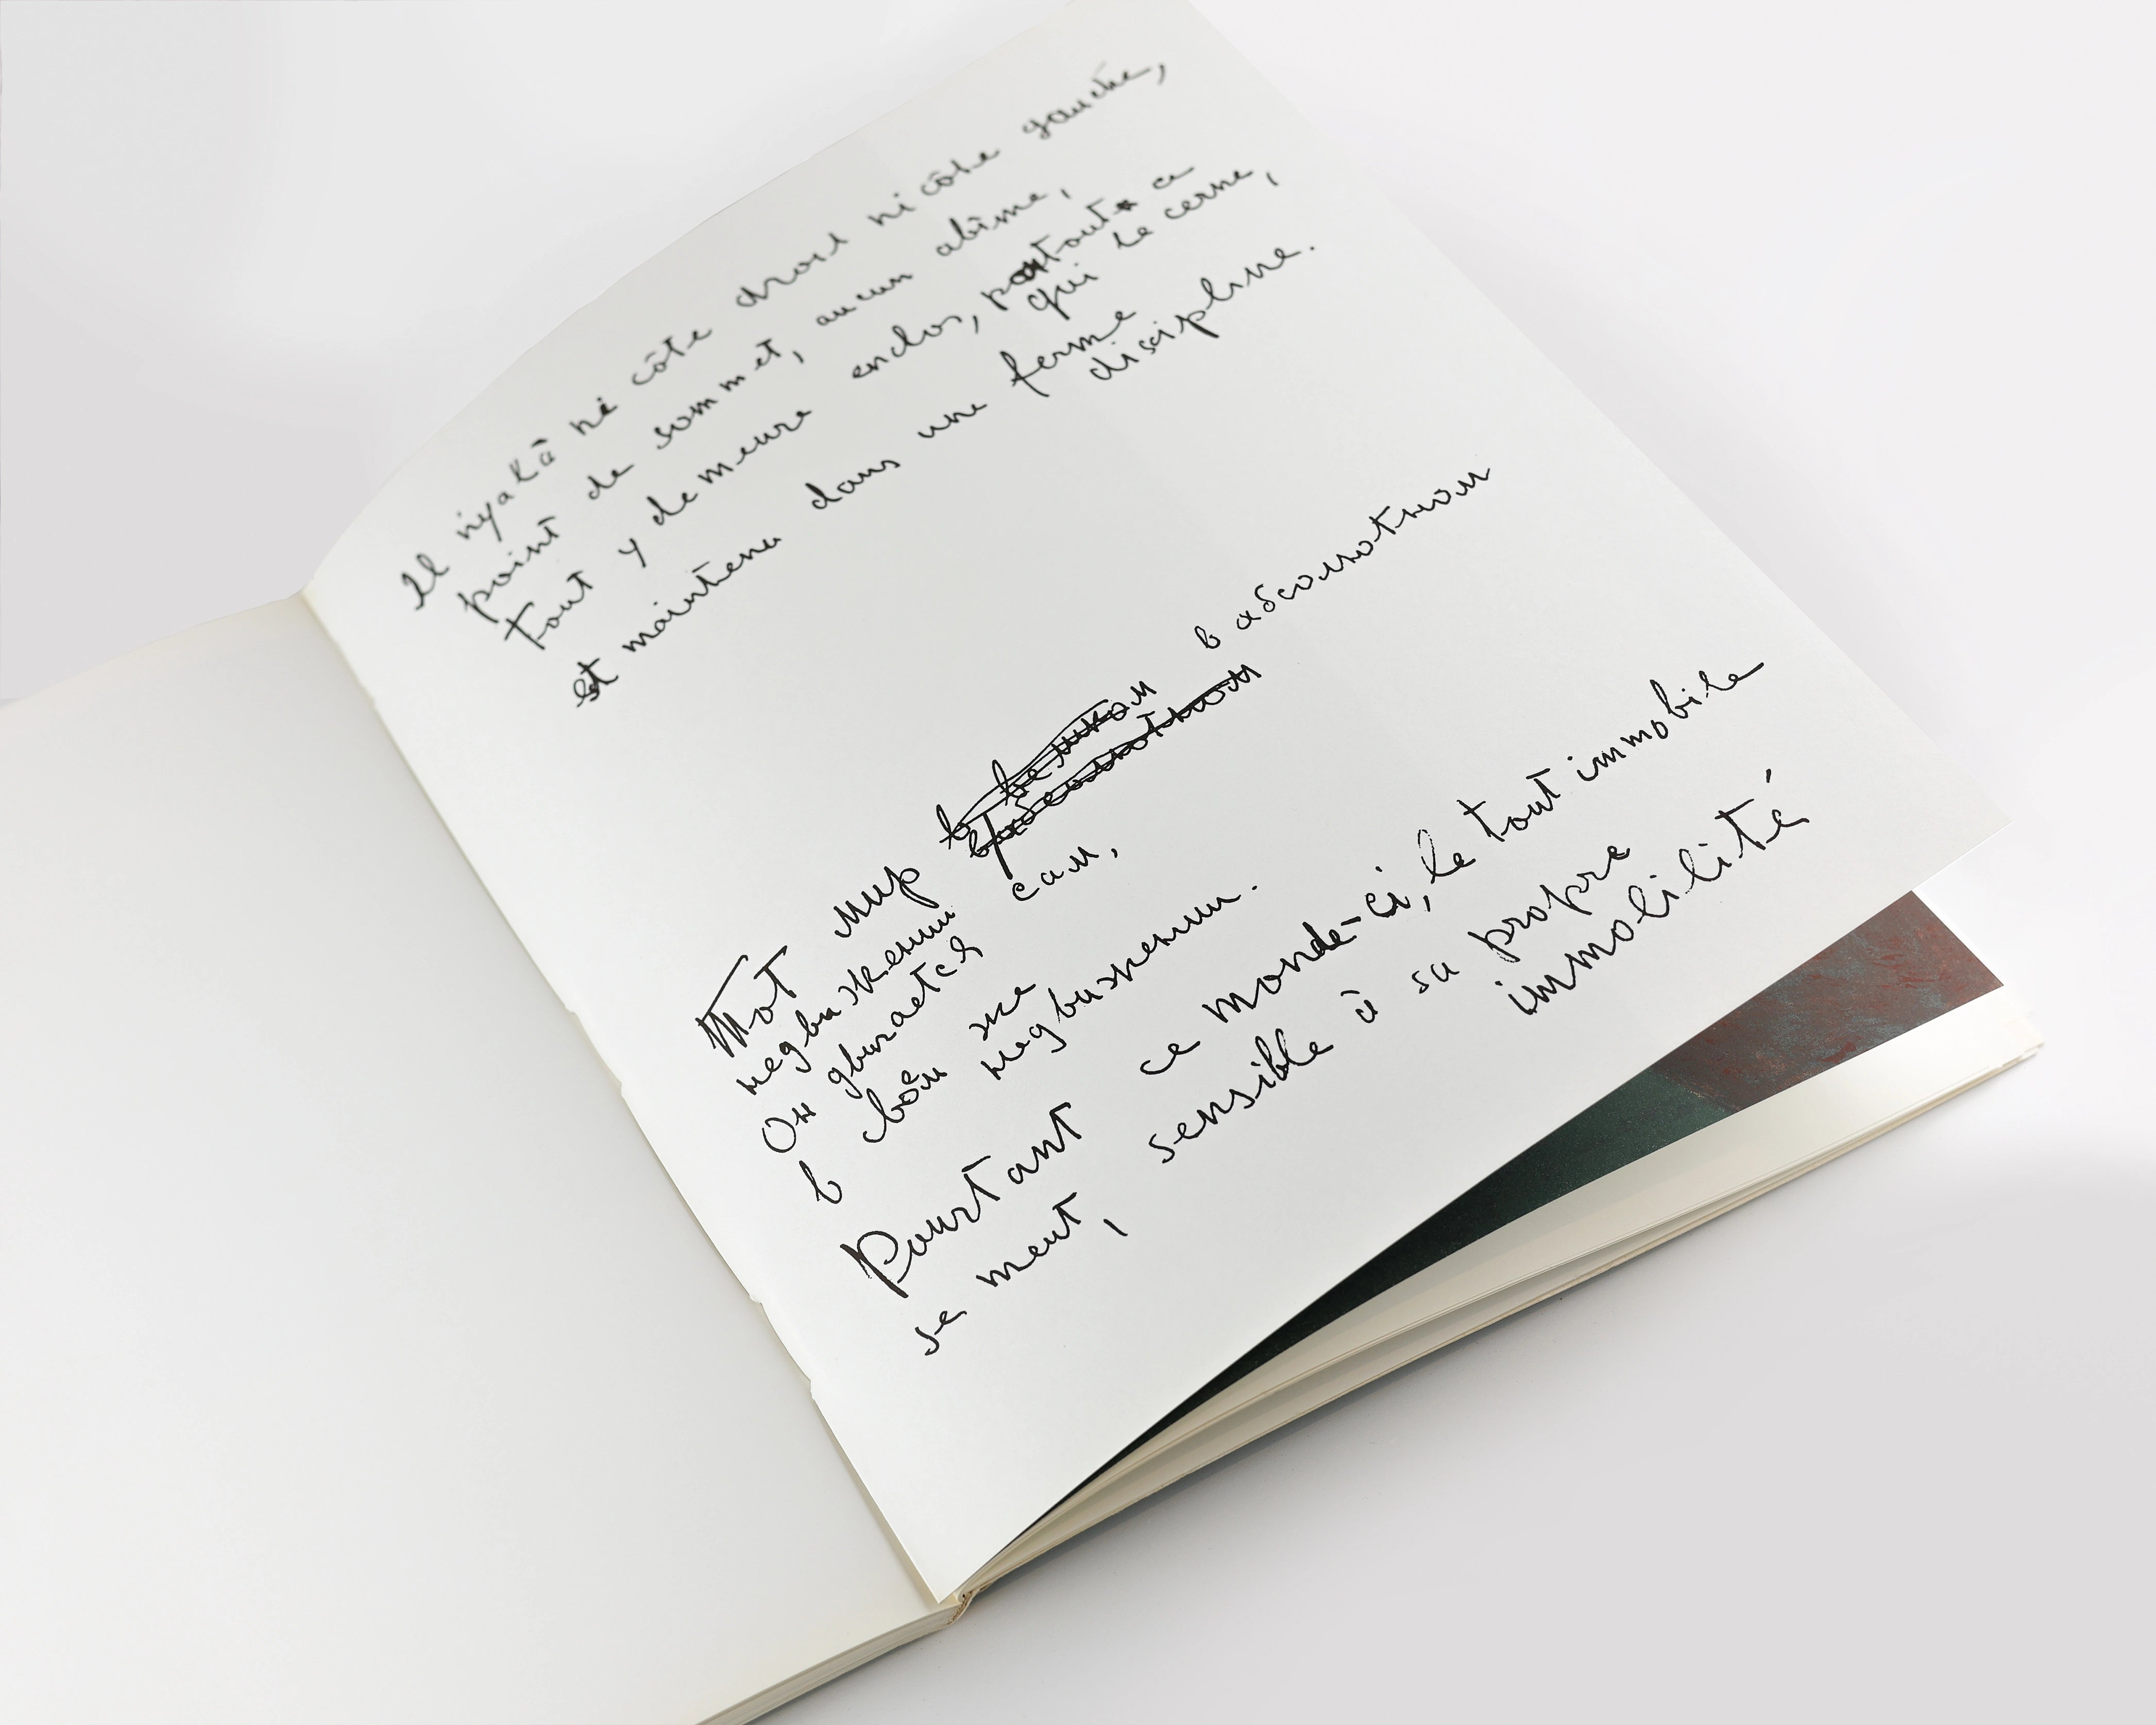 Il n'ya là ni côte droit ni côte gauche,
point de sommet, aucun abîme,
Tout y demeure enclos, partout ce
qui le cerne,
et maintenu dans une ferme
discipline.
Тот мир в великом в абсолютном
абсолютном
недвижении сам,
Он двигается
в своём же недвижении.
Pourtant ce monde-ci, le tout immobile
se meut, sensible à sa propre
immobilité